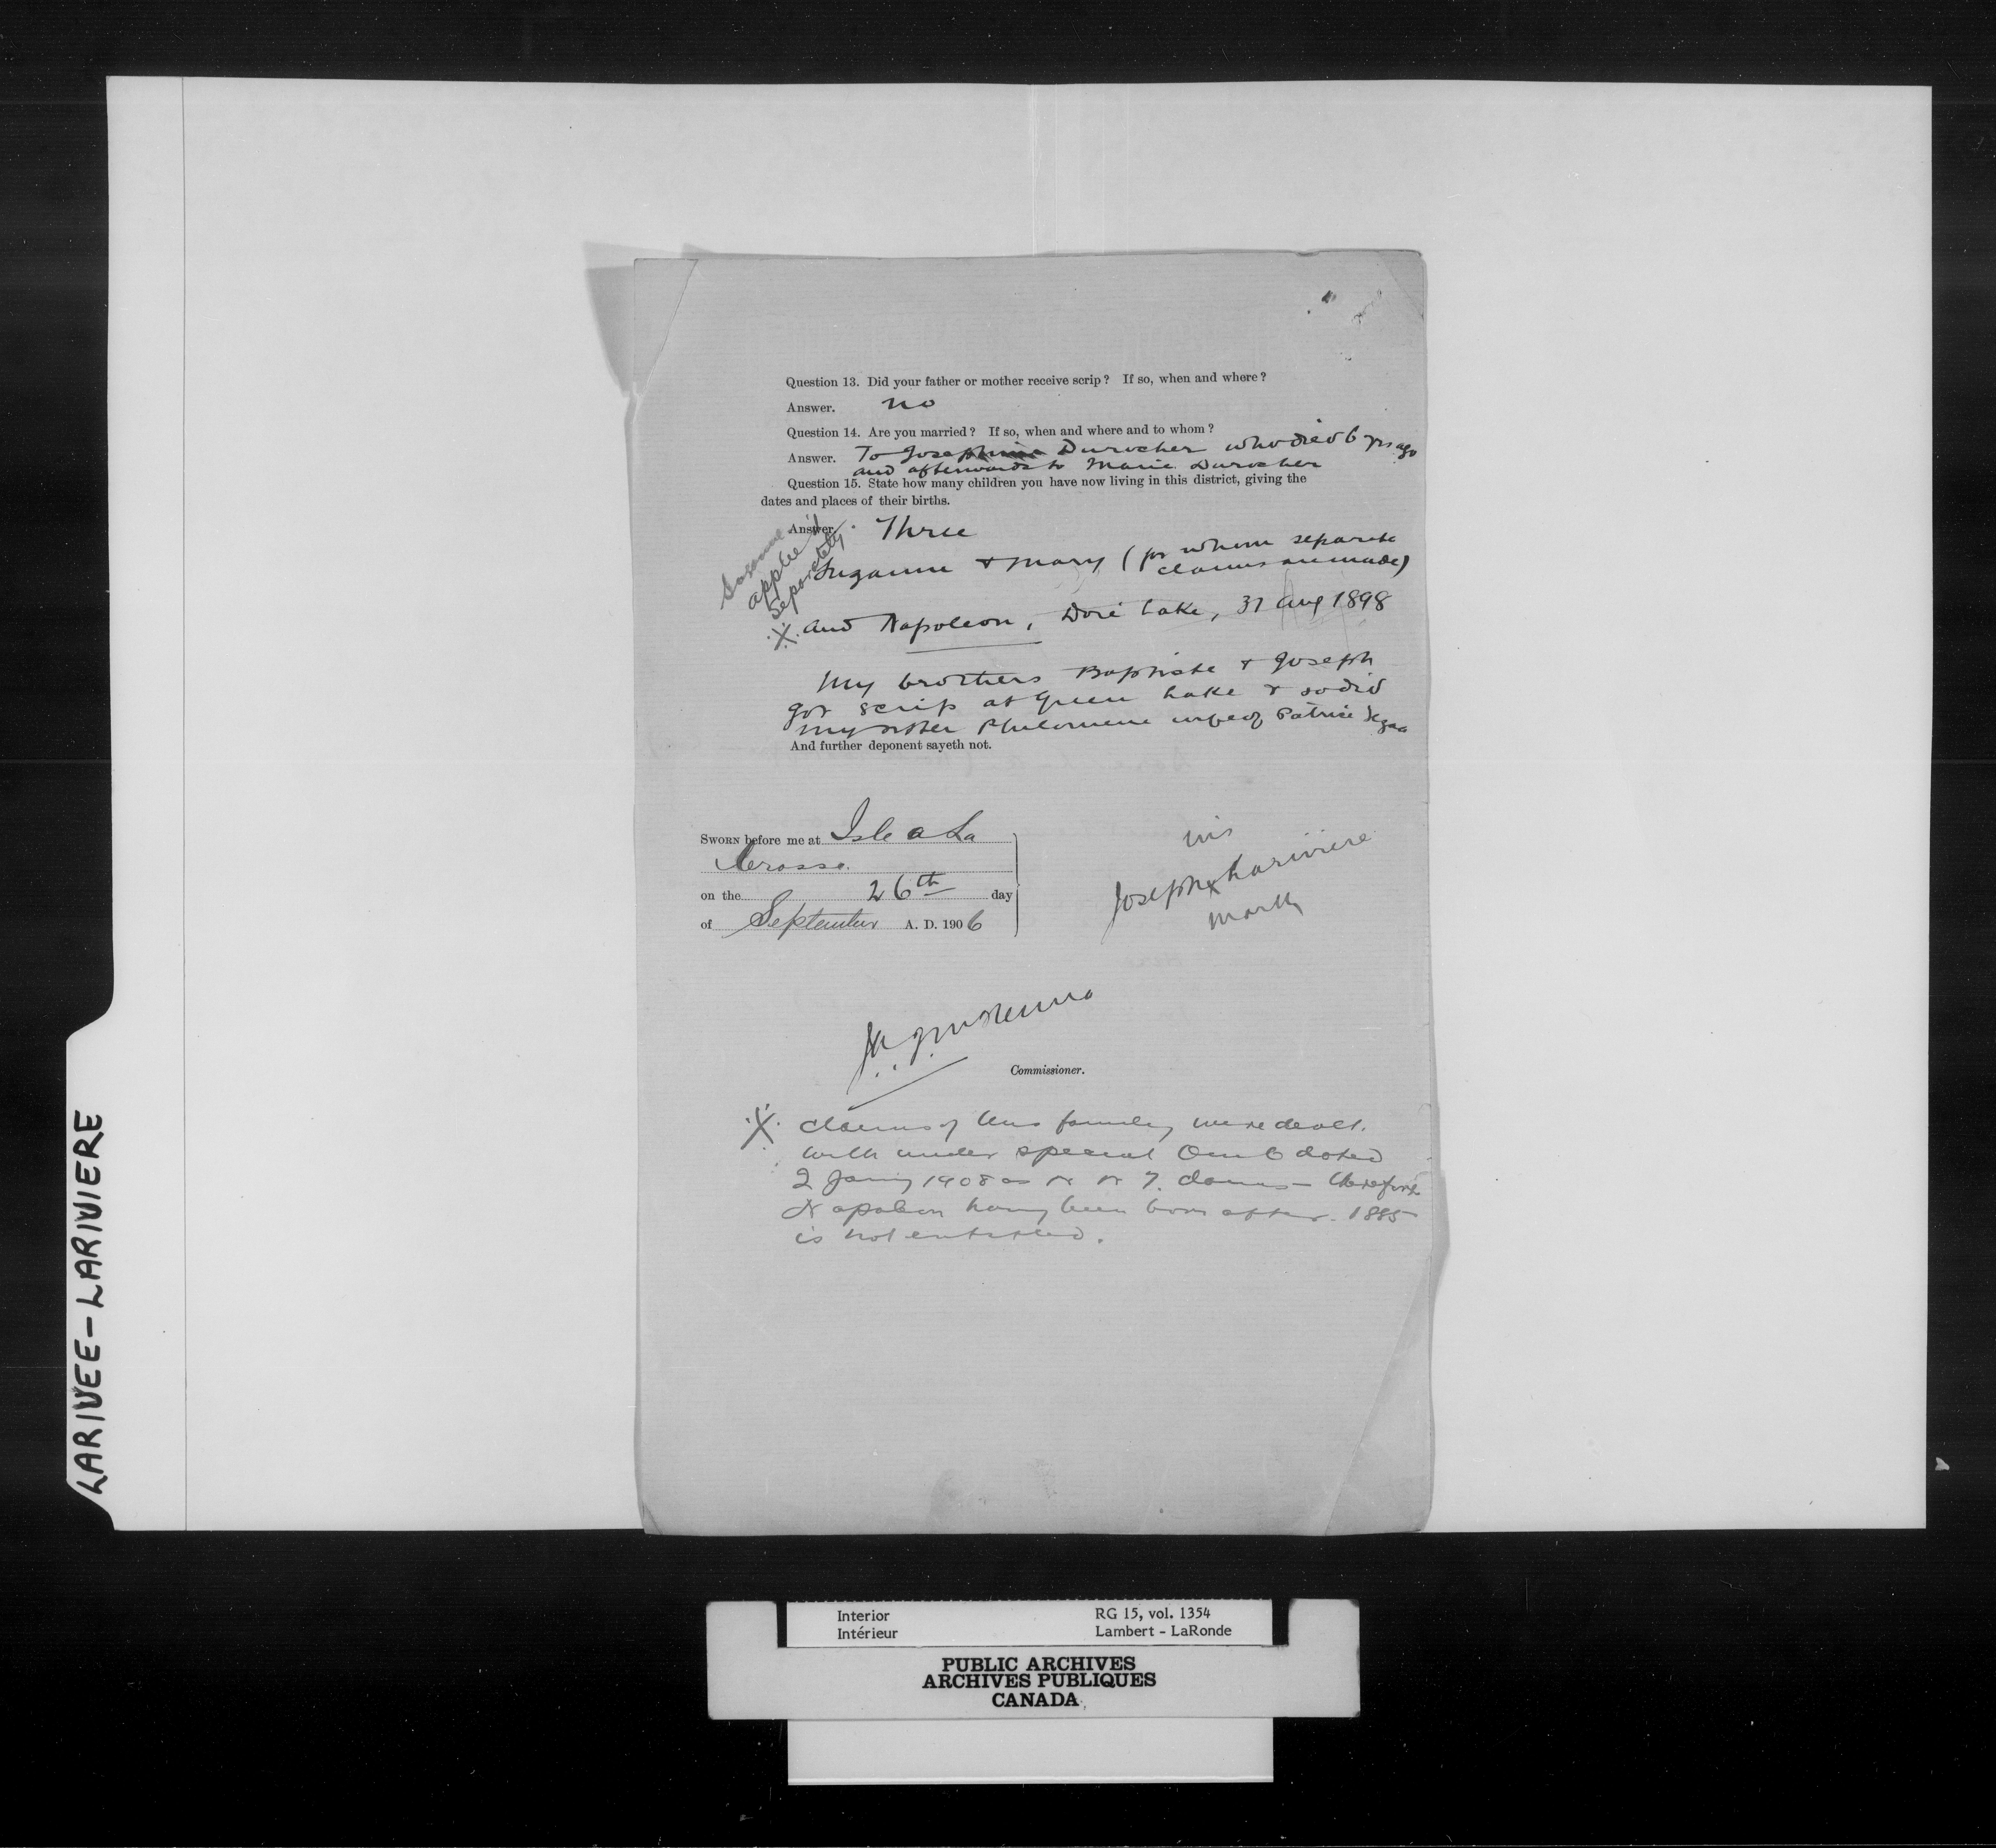 Question 13. Did your father or mother receive scrip? If so, when and where?
Answer. no
Question 14. Are you married? If so, when and where and to whom?
Answer. To Josephine Durocher who died 6 yrs ago
and afterwards to Marie Durocher
Question 15. State how many children you have now living in this district, giving the
dates and places of their births.
Answer. Three
Susanne
applied
Separately
Suzanne & Mary (for whom separate
claims are made)
and Napoleon, Doré Lake, 31 Aug 1898
My brothers Baptiste & Joseph
got scrip at Green Lake & so did
my sister Philomene wife of Patrice
And further deponent sayeth not.
SWORN before me at Isle a La
Crosse.
on the 26th day
of September A. D. 1906
his
Joseph x Lariviere
mark
Commissioner.
claims of this family were dealt
with under special O in C dated
2 Jany 1908 as N W T. claims - therefore
Napoleon having been born after 1885
is not entitled.
LARIVEE-LARIVIERE
Interior
Intérieur
RG 15, vol. 1354
Lambert - LaRonde
PUBLIC ARCHIVES
ARCHIVES PUBLIQUES
CANADA